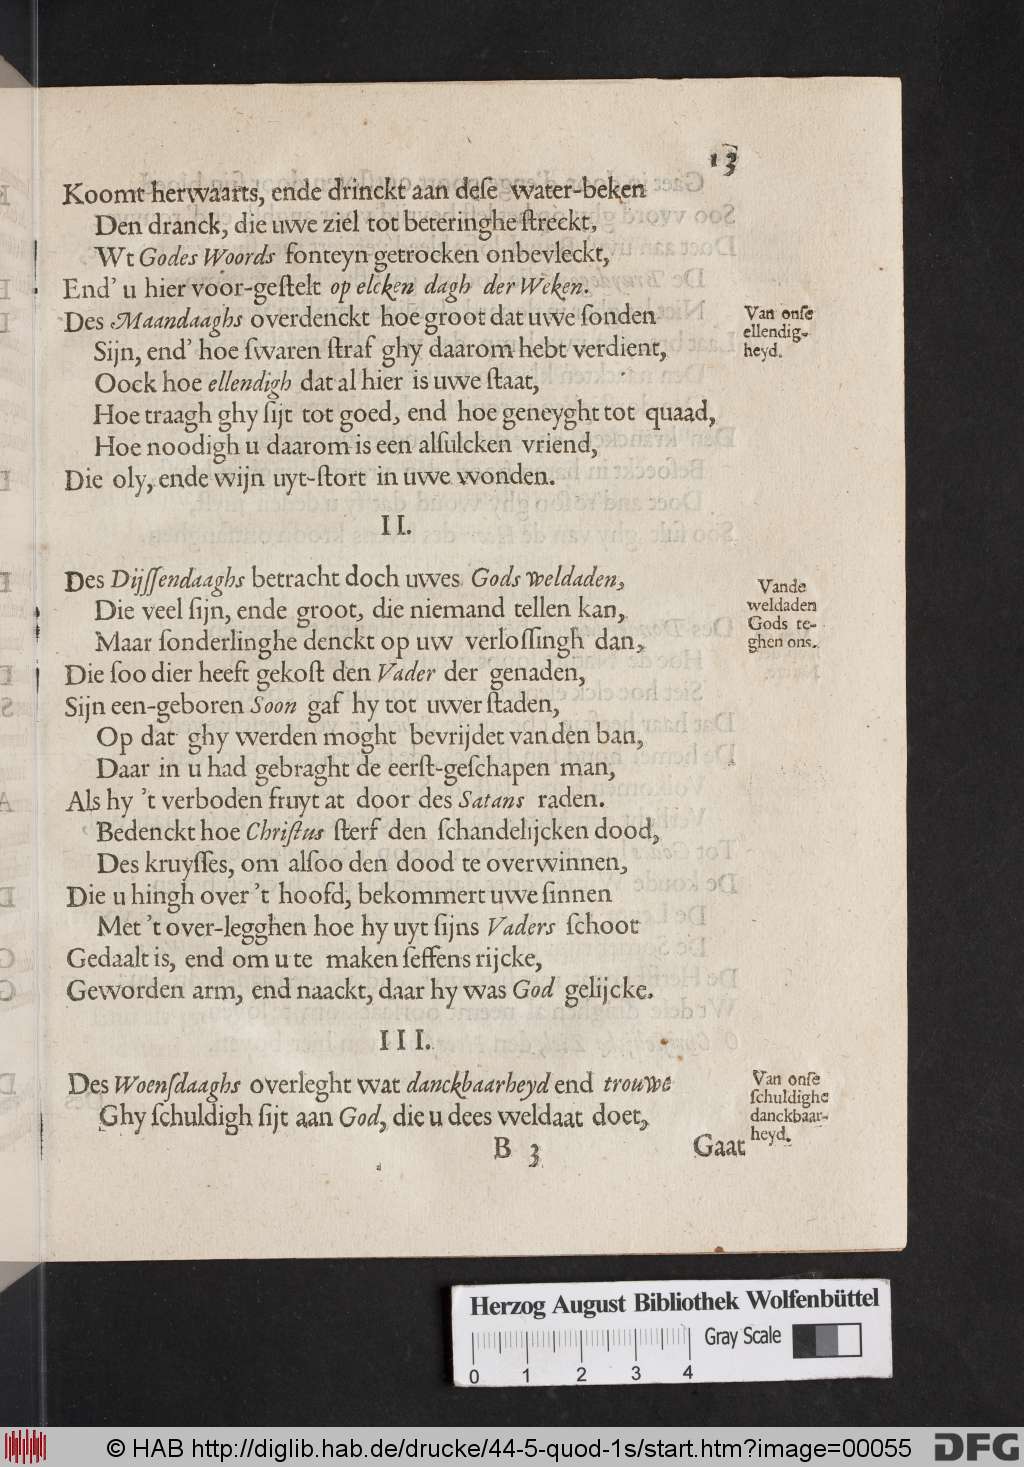 13
Koomt herwaarts, ende drinckt aan deſe water-beken
Den dranck, die uwe ziel tot beteringhe ſtreckt,
Wt Godes Woords fonteyn getrocken onbevleckt,
End' u hier voor-geſtelt op elcken dagh der Weken.
Des Maandaaghs overdenckt hoe groot dat uwe ſonden
Sijn, end' hoe ſwaren ſtraf ghy daarom hebt verdient,
Oock hoe ellendigh dat al hier is uwe ſtaat,
Hoe traagh ghy ſijt tot goed, end hoe geneyght tot quaad,
Hoe noodigh u daarom is een alſulcken vriend,
Die oly, ende wijn uyt-ſtort in uwe wonden.
Van onſe
ellendig-
heyd.
II.
Des Dijſſendaaghs betracht doch uwes Gods weldaden,
Die veel ſijn, ende groot, die niemand tellen kan,
Maar ſonderlinghe denckt op uw verloſſingh dan,
Die ſoo dier heeft gekoſt den Vader der genaden,
Sijn een-geboren Soon gaf hy tot uwer ſtaden,
Op dat ghy werden moght bevrijdet van den ban,
Daar in u had gebraght de eerſt-geſchapen man,
Als hy 't verboden fruyt at door des Satans raden.
Bedenckt hoe Chriſtus ſterf den ſchandelijcken dood,
Des kruyſſes, om alſoo den dood te overwinnen,
Die u hingh over 't hoofd, bekommert uwe ſinnen
Met 't over-legghen hoe hy uyt ſijns Vaders ſchoot
Gedaalt is, end om u te maken ſeffens rijcke,
Geworden arm, end naackt, daar hy was God gelijcke.
Vande
weldaden
Gods te-
ghen ons.
III.
Des Woenſdaaghs overleght wat danckbaarheyd end trouwe
Ghy ſchuldigh ſijt aan God, die u dees weldaat doet,
Van onſe
ſchuldighe
danckbaar-
heyd.
B 3
Gaat
Herzog August Bibliothek Wolfenbüttel
Gray Scale
0 1 2 3 4
© HAB http://diglib.hab.de/drucke/44-5-quod-1s/start.htm?image=00055
DFG